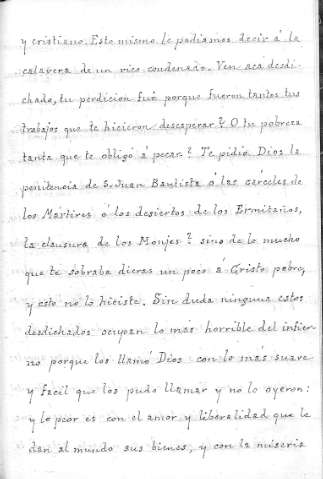 y cristiano. Esto mismo le podiamos decir á la
calavera de un rico condenado. Ven acá desdi-
chado, tu perdicion fué porque fueron tantos tus
trabajos que te hicieron desesperar? O tu pobreza
tanta que te obligó á pecar? Te pidió Dios la
penitencia de S. Juan Bautista ó las cárceles de
los Mártires ó los desiertos de los Ermitaños,
la clausura de los Monjes? sino de lo mucho
que te sobraba dieras un poco a Cristo pobre,
y esto no lo hiciste. Sin duda ninguna estos
desdichados ocupan lo más horrible del infier-
no porque los llamó Dios con lo más suave
y facil que los pudo llamar y no lo oyeron:
y lo peor es con el amor y liberalidad que le
dan al mundo sus bienes, y con la miseria